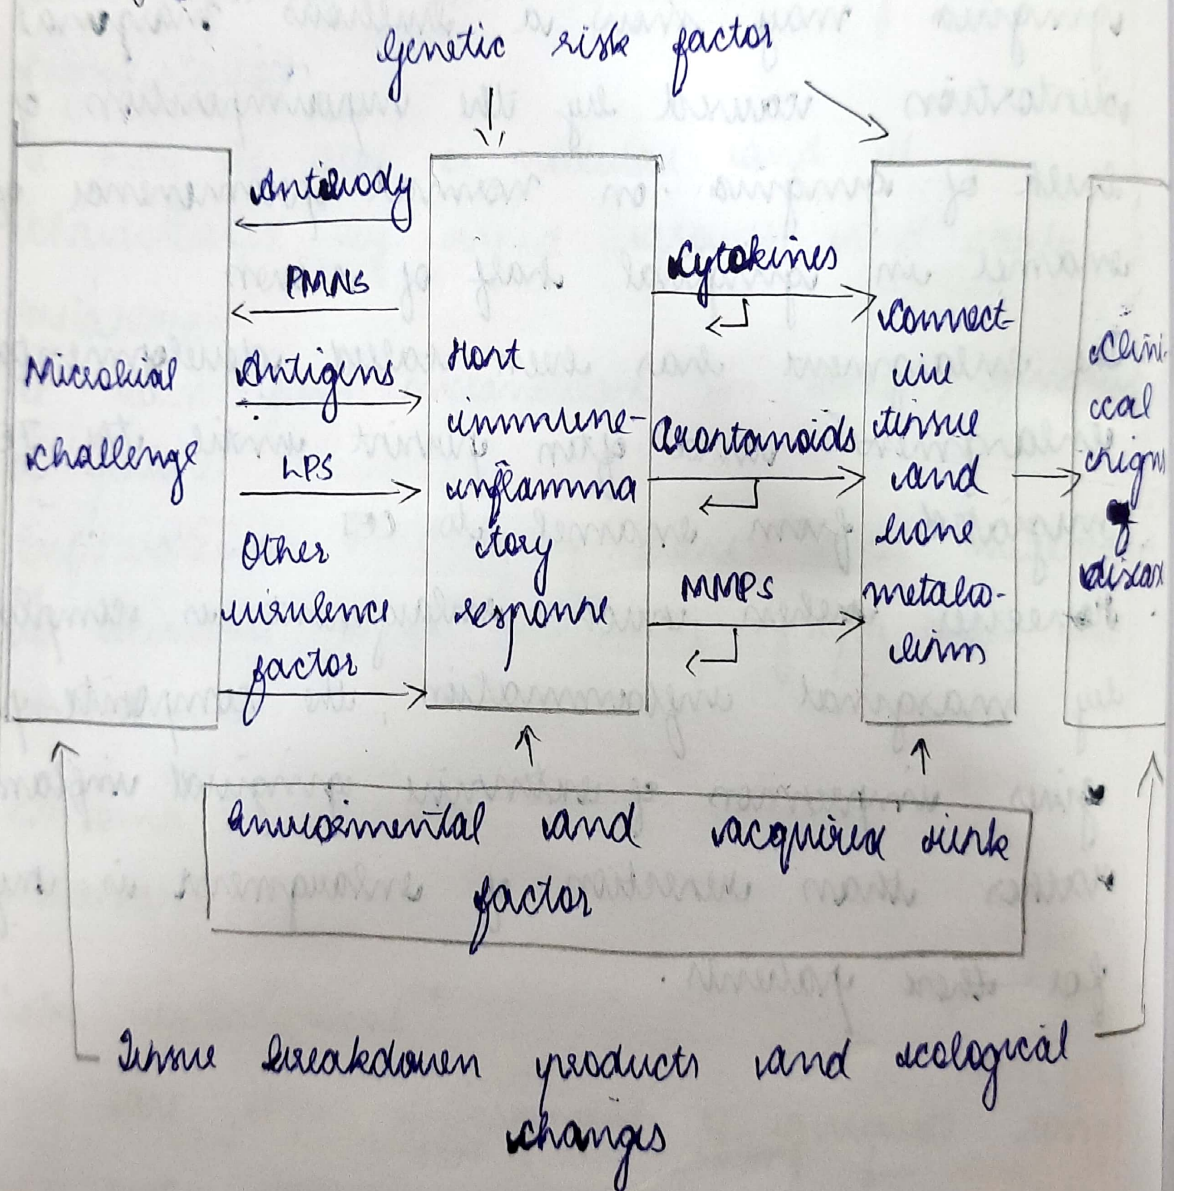 Genetic risk factor
Antibody
PMNS
Antigens
LPS
Other
virulence
factor
Microbial
challenge
Host
immune-
inflamma
tory
response
Cytokines
Prostanoids
MMPS
connect-
ive
tissue
and
bone
metabo-
lism
Clini-
cal
signs
of
disease
Enviormental and acquired risk
factor
Tissue breakdown products and ecological
changes